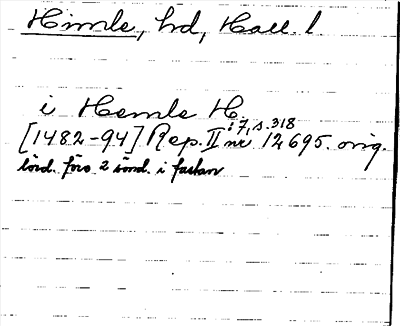 Himle, hd, Hall. l.
i Hemle H.
[1482-94] Rep. II :7, s. 318 nr 12695. orig.
lörd. före 2 sönd. i fastan